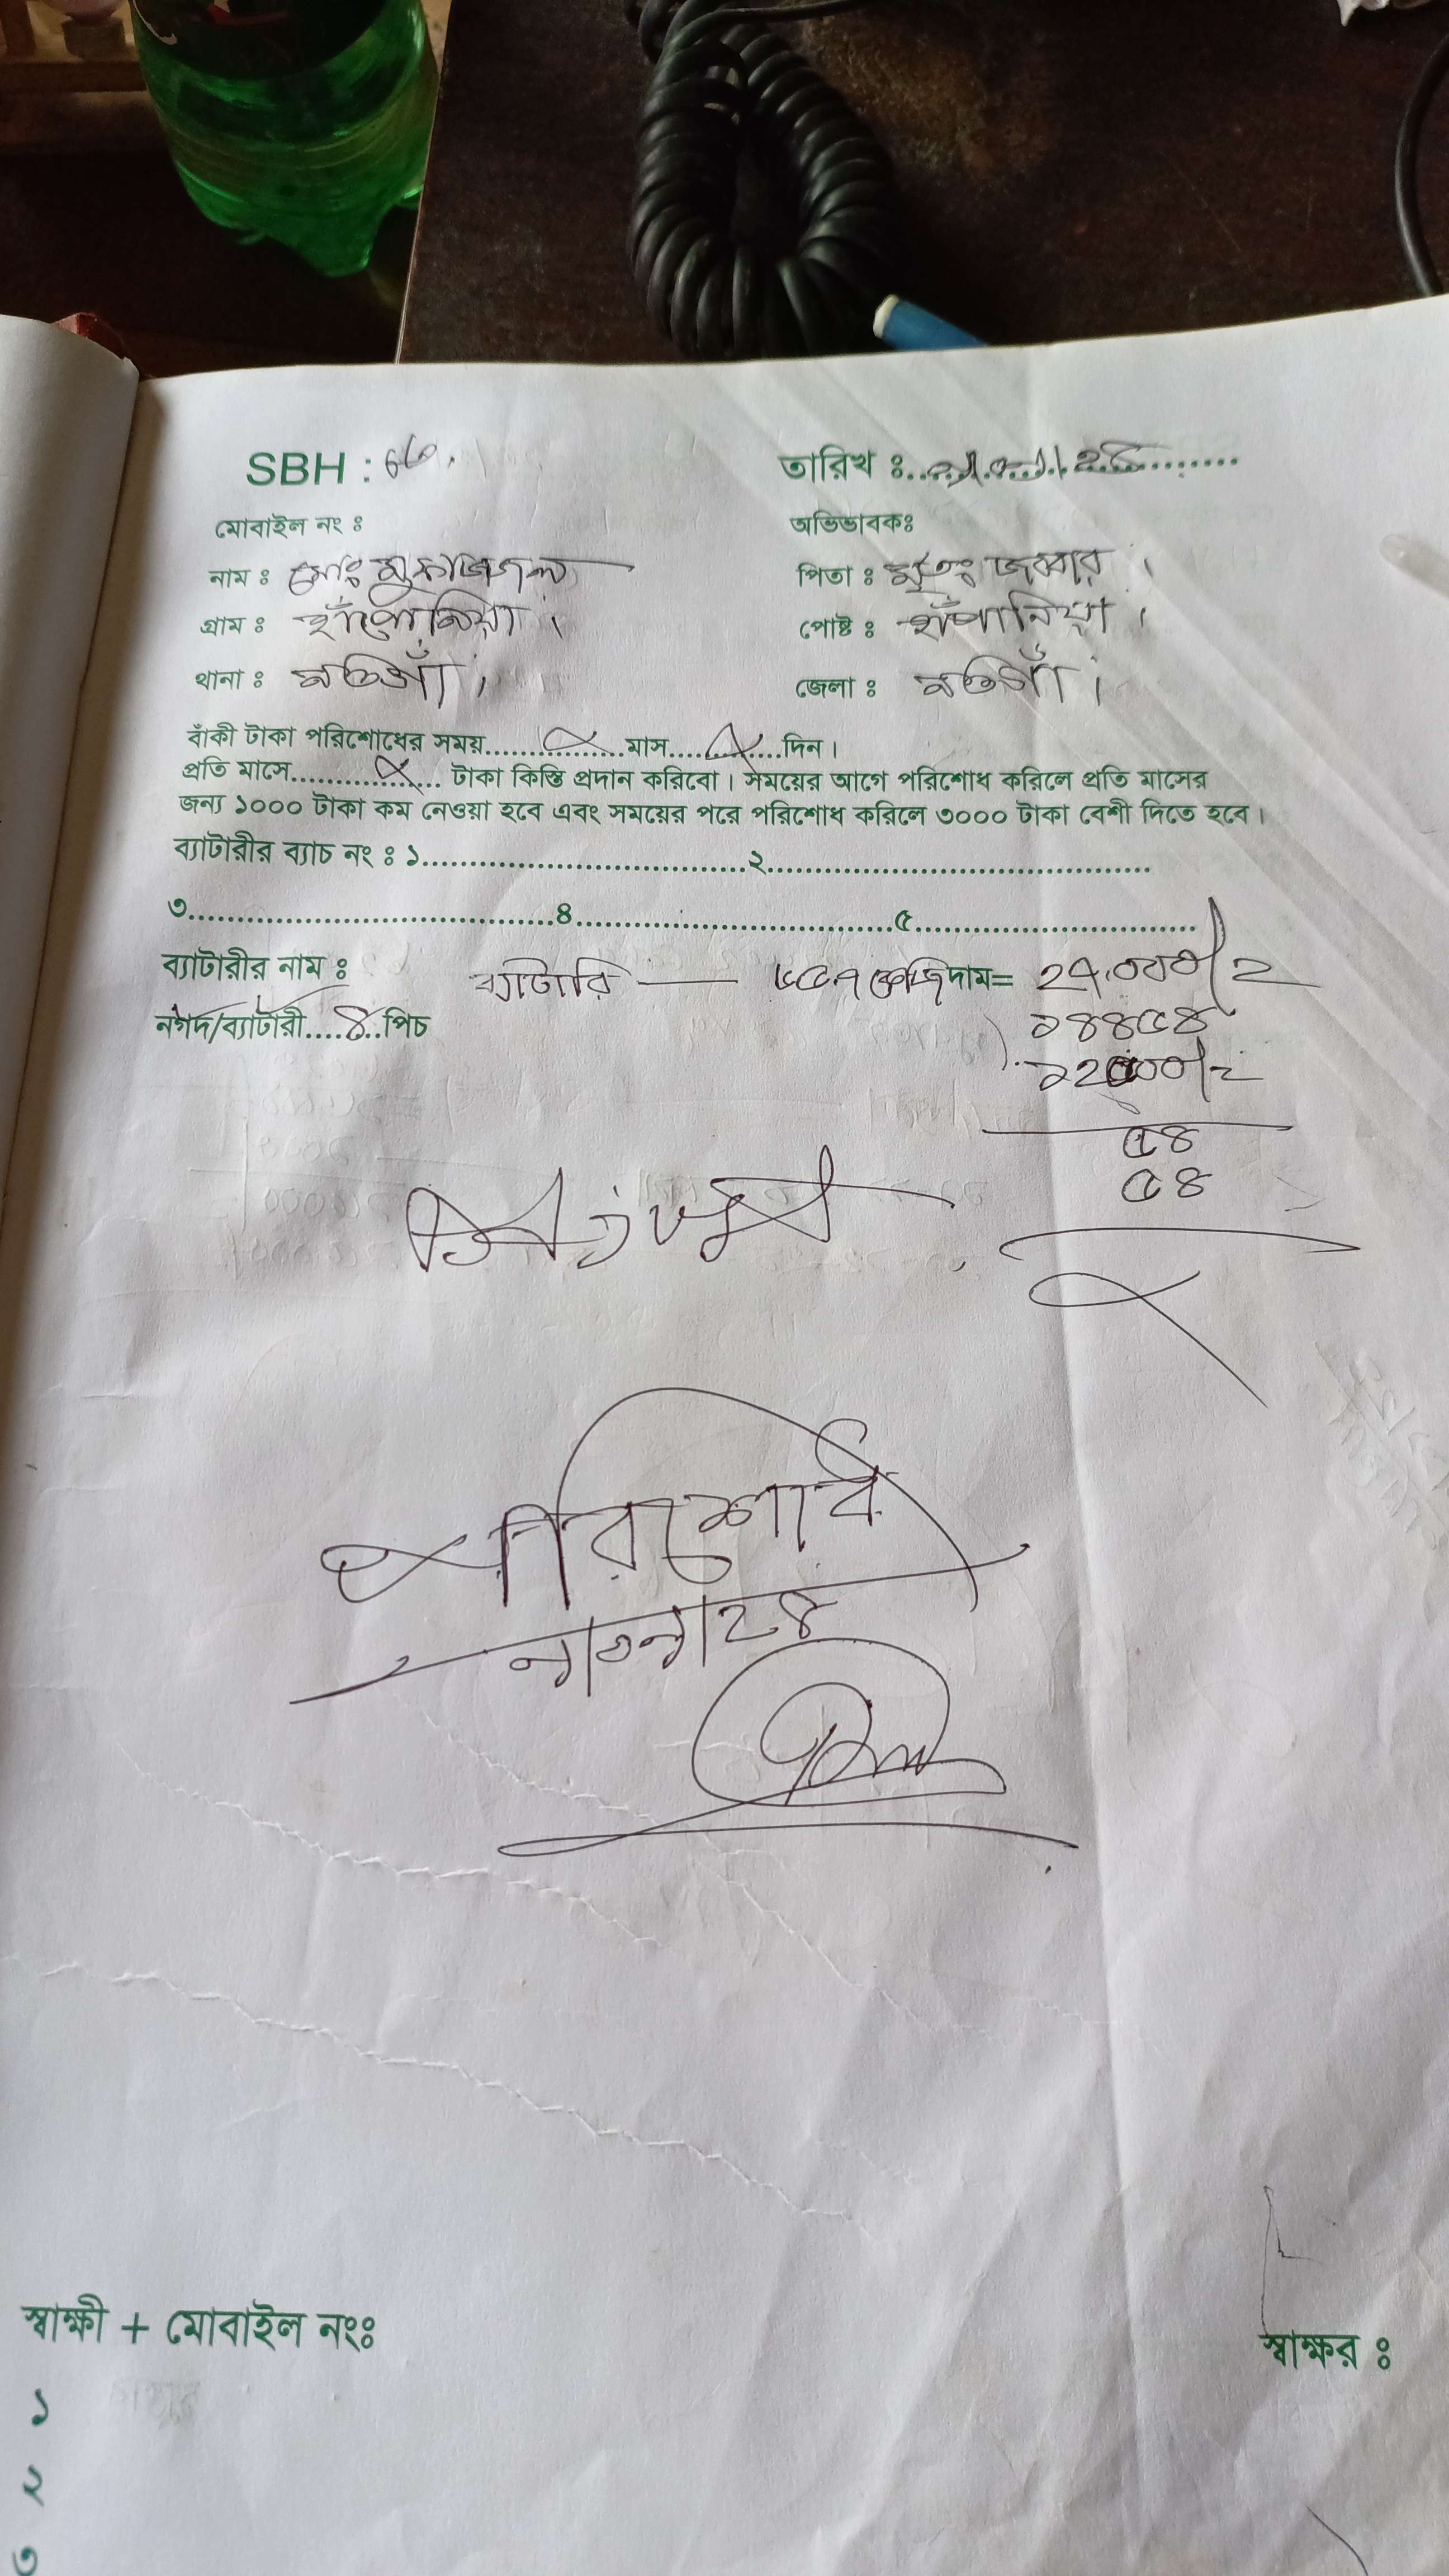 SBH : তারিখ ঃ
মোবাইল নং ঃ অভিভাবকঃ
নাম ঃ মোঃ মুফাজ্জল পিতা ঃ মৃতঃ জব্বার ।
গ্রাম ঃ হাঁপানিয়া । পোষ্ট ঃ হাঁপানিয়া ।
থানা ঃ নওগাঁ । জেলা ঃ নওগাঁ ।
বাঁকী টাকা পরিশোধের সময়....................মাস................দিন ।
প্রতি মাসে.................... টাকা কিস্তি প্রদান করিবো । সময়ের আগে পরিশোধ করিলে প্রতি মাসের
জন্য ১০০০ টাকা কম নেওয়া হবে এবং সময়ের পরে পরিশোধ করিলে ৩০০০ টাকা বেশী দিতে হবে ।
ব্যাটারীর ব্যাচ নং ঃ ১..................................২........................................
৩......................................৪..................................৫..............................
ব্যাটারীর নাম ঃ ব্যাটারি — কেজি দাম=
নগদ/ব্যাটারী....৪..পিচ ১৪৪৫৪
৫৪
৫৪
পরিশোধ
স্বাক্ষী + মোবাইল নংঃ স্বাক্ষর ঃ
১
২
৩